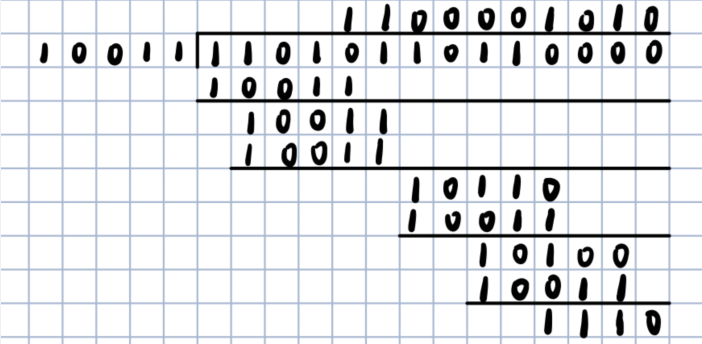 1 1 0 0 0 0 1 0 1 0
1 0 0 1 1 1 1 0 1 0 1 1 0 1 1 0 0 0 0
1 0 0 1 1
1 0 0 1 1
1 0 0 1 1
1 0 1 1 0
1 0 0 1 1
1 0 1 0 0
1 0 0 1 1
1 1 1 0